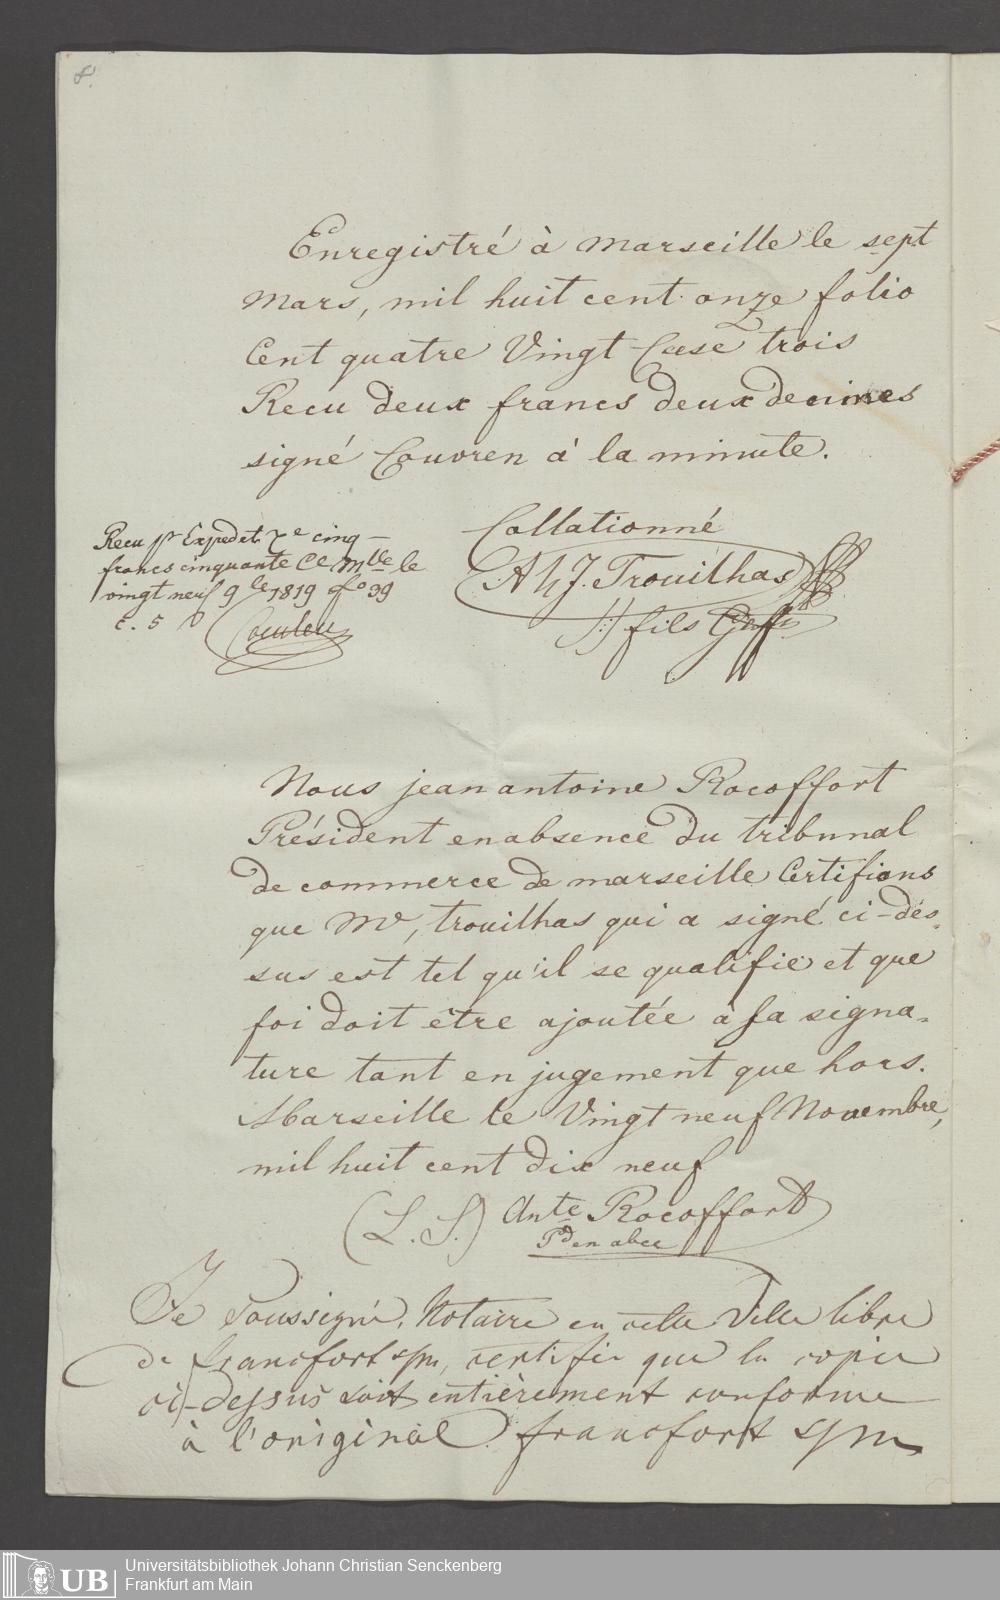 8.
Enregistré à Marseille le sept
Mars, mil huit cent onze folio
Cent quatre Vingt Case trois
Recu deux francs deux decimes
signé Couvren à la minute.
Collationné
Recu pr Expedet. xe cinq
francs cinquante Ce Mlle le
vingt neuf 9 le 1819 fo 39
c. 5
A h J. Trouilhas
fils Greffr
Nous jean antoine Rocoffort
Président en absence du tribunal
de commerce de marseille Certifions
que Mr, trouilhas qui a signé ci-dés=
sus est tel qu'il se qualifie et que
foi doit être ajoutée à sa signa=
ture tant en jugement que hors.
Marseille le Vingt neuf Novembre,
mil huit cent dix neuf
(L. S.) Ante Rocoffort
Pd en abce
Je Soussigné, Notaire en cette Ville libre
de francfort s/m, certifie que la copie
ci-dessus soit entièrement conforme
à l'original. francfort s/m
UB
Universitätsbibliothek Johann Christian Senckenberg
Frankfurt am Main